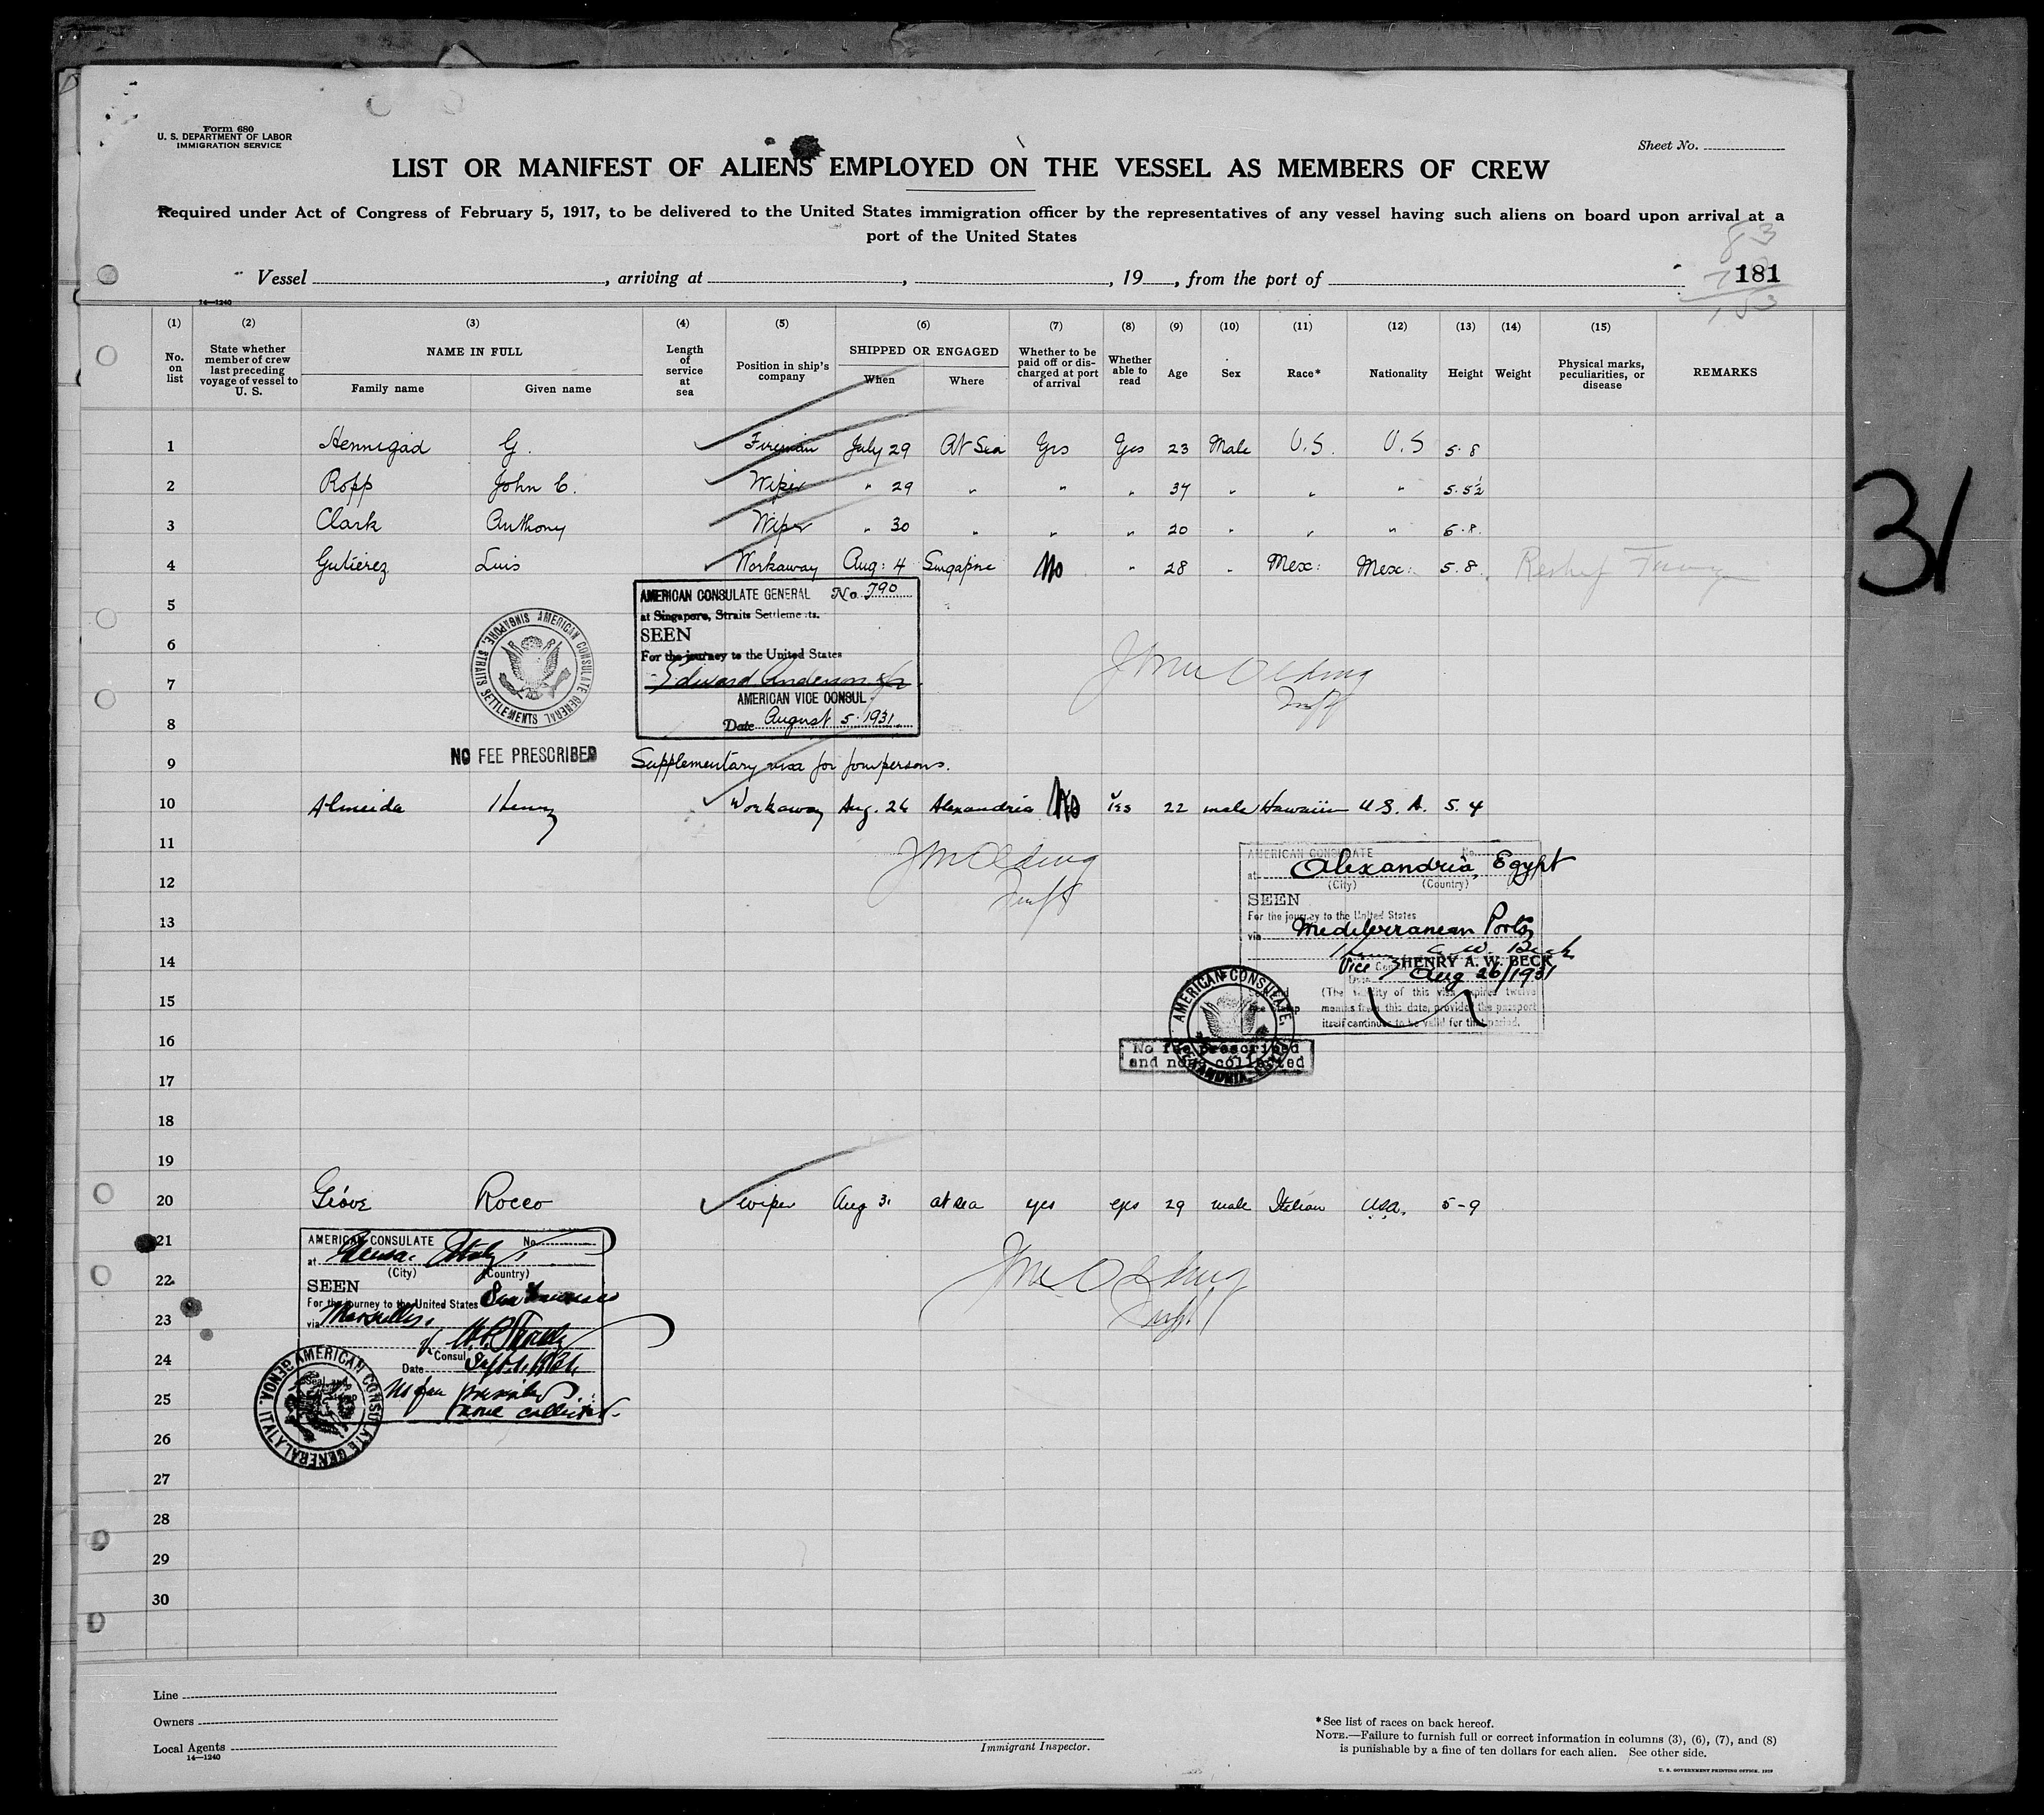 Form 680
U. S. DEPARTMENT OF LABOR
IMMIGRATION SERVICE
Sheet No.
LIST OR MANIFEST OF ALIENS EMPLOYED ON THE VESSEL AS MEMBERS OF CREW
Required under Act of Congress of February 5, 1917, to be delivered to the United States immigration officer by the representatives of any vessel having such aliens on board upon arrival at a
port of the United States
Vessel , arriving at , , 19 , from the port of
181
14—1240
(1) (2) (3) (4) (5) (6) (7) (8) (9) (10) (11) (12) (13) (14) (15)
No. on list
State whether member of crew last preceding voyage of vessel to U. S.
NAME IN FULL
Family name Given name
Length of service at sea
Position in ship's company
SHIPPED OR ENGAGED
When Where
Whether to be paid off or discharged at port of arrival
Whether able to read
Age
Sex
Race*
Nationality
Height
Weight
Physical marks, peculiarities, or disease
REMARKS
1 Hennigad G. Fireman July 29 At Sea Yes Yes 23 Male U.S. U.S 5.8
2 Ropp John C. Wiper " 29 " " " 37 " " " 5.5½
3 Clark Anthony Wiper " 30 " " " 20 " " "
4 Gutierez Luis Workaway Aug: 4 Singapore No " 28 " Mex: Mex: 5.8
5
AMERICAN CONSULATE GENERAL No. 790
at Singapore, Straits Settlements.
SEEN
For the journey to the United States
Edward Anderson Jr
AMERICAN VICE CONSUL
Date August 5. 1931
AMERICAN CONSULATE GENERAL SINGAPORE, STRAITS SETTLEMENTS
6
7
8
NO FEE PRESCRIBED
9 Supplementary visa for four persons.
10 Almeida Henry Workaway Aug. 26 Alexandria No Yes 22 male Hawaiin U.S.A. 5.4
11
AMERICAN CONSULATE No.
at Alexandria, Egypt
(City) (Country)
12
SEEN
For the journey to the United States
13
via Mediterranean Ports
14
Vice HENRY A. W. BECK
Date Aug 26/1931
15
(The validity of this visa expires twelve
months from this date, provided the passport
itself continues to be valid for that period.
AMERICAN CONSULATE,
16
No fee prescribed
and none collected
17
18
19
20 Giove Rocco wiper Aug 31 at sea yes yes 29 male Italian USA. 5-9
21
AMERICAN CONSULATE No.
at Genoa Italy
(City) (Country)
22
SEEN
For the journey to the United States San Francisco
23
via Marseilles
Consul
24
Date Sept. 1, 1931
AMERICAN CONSULATE GENERAL GENOA, ITALY
25
No fee prescribed
none collected.
26
27
28
29
30
31
Line
Owners
Local Agents
14—1240
Immigrant Inspector.
*See list of races on back hereof.
NOTE.—Failure to furnish full or correct information in columns (3), (6), (7), and (8)
is punishable by a fine of ten dollars for each alien. See other side.
U. S. GOVERNMENT PRINTING OFFICE. 1929